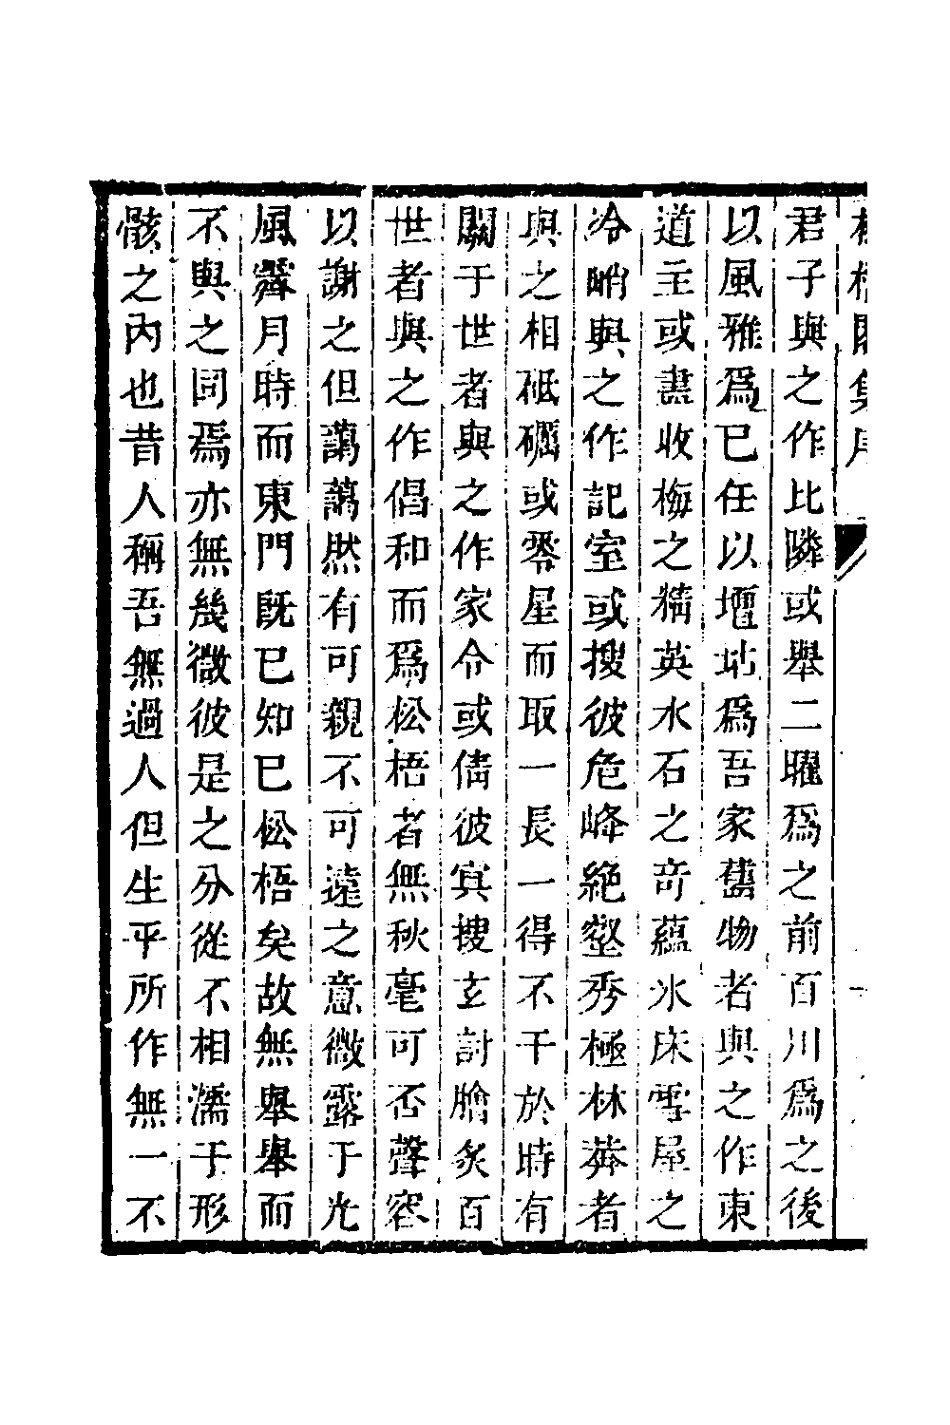 集序
君子與之作比隣或舉二曜爲之前百川爲之後
以風雅爲已任以壇坫爲吾家舊物者與之作東
道主或盡收梅之精英水石之奇蘊氷床雪屋之
冷峭與之作記室或搜彼危峰絕壑秀極林莽者
與之相砥礪或零星而取一長一得不干於時有
關于世者與之作家令或倩彼寘搜玄討膾炙百
世者與之作倡和而爲松梧者無秋毫可否聲容
以謝之但藹藹然有可親不可遠之意微露于光
風霽月時而東門旣已知已松梧矣故無舉舉而
不與之同焉亦無幾微彼是之分從不相濡于形
骸之內也昔人稱吾無過人但生平所作無一不